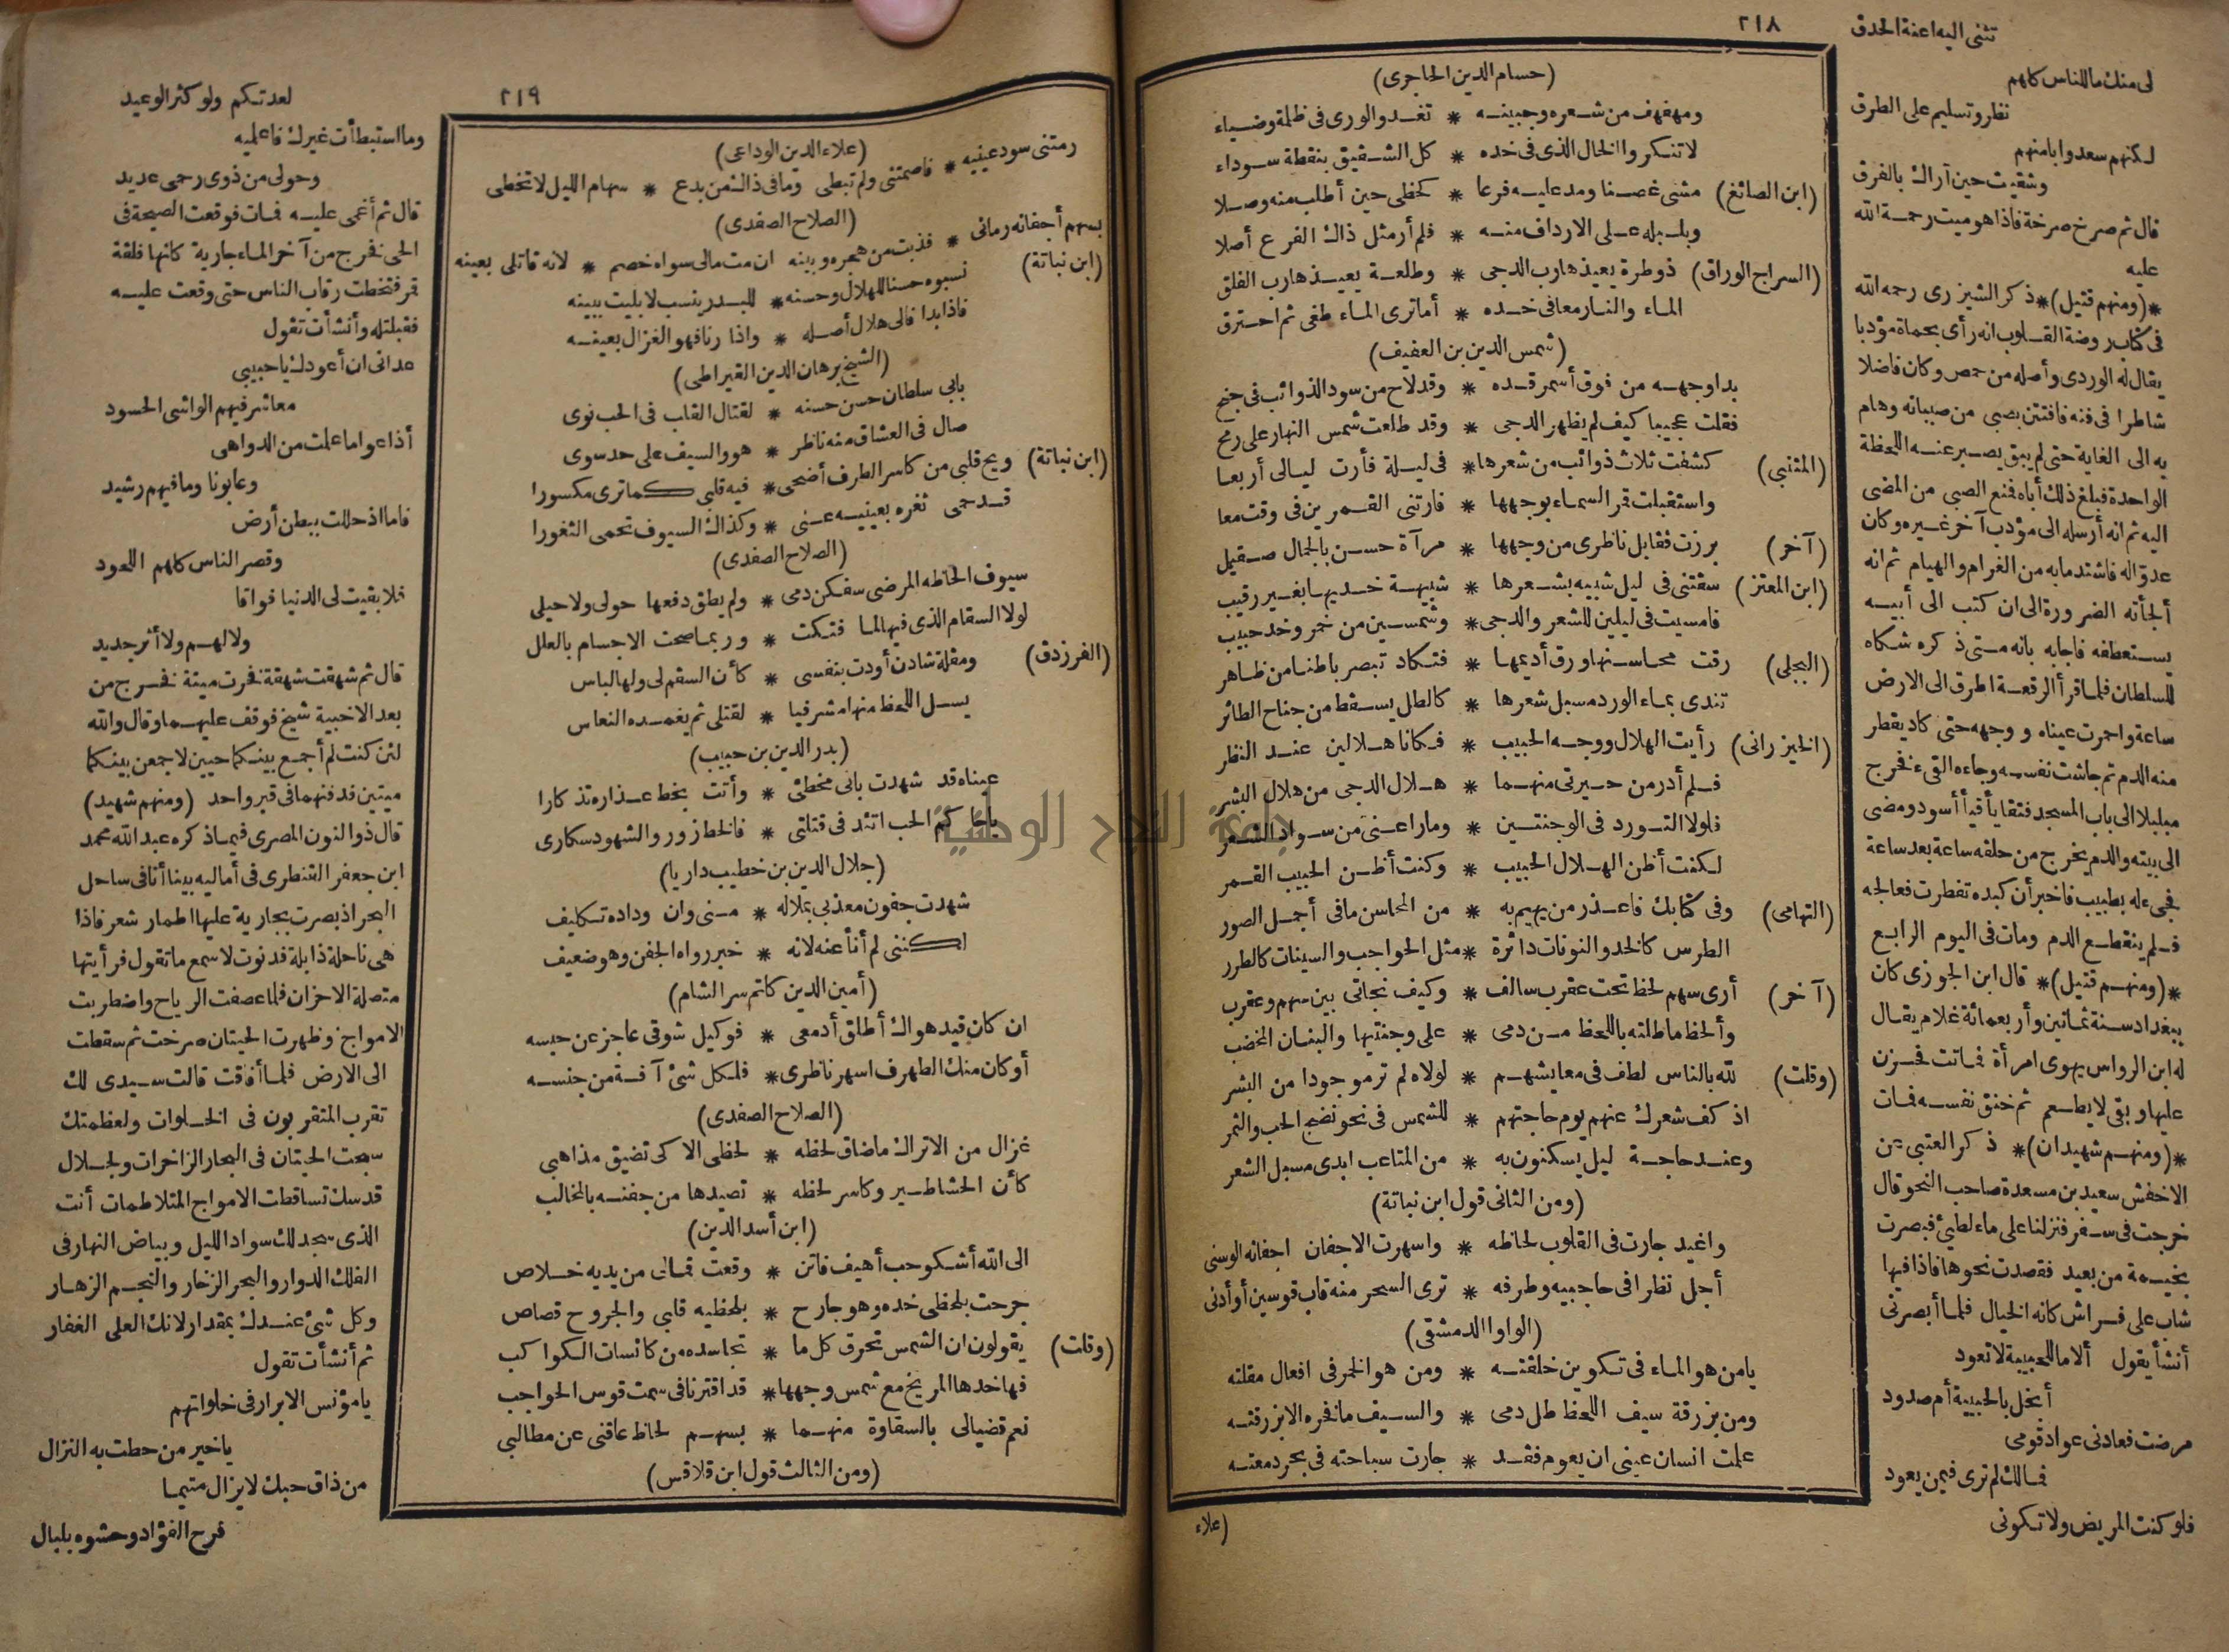 ٢١٨
(حسام الدين الحاجرى)
ومهفهف من شعره وجبينه * تغدو الورى فى ظلمة وضياء
لا تنكروا الخال الذى فى خده * كل الشقيق بنقطة سوداء
(ابن الصائغ) مثنى غصنا ومد عليه فرعا * كحظى حين أطلب منه وصلا
وبلبله على الارداف منه * فلم أر مثل ذاك الفرع أصلا
(السراج الوراق) ذو طرة يعيذ هارب الدجى * وطلعة يعيذ هارب الفلق
الماء والنار معا فى خده * أما ترى الماء طغى ثم احترق
(شمس الدين بن العفيف)
بدا وجهه من فوق أسمر قده * وقد لاح من سود الذوائب فى جنح
فقلت عجيبا كيف لم يظهر الدجى * وقد طلعت شمس النهار على رمح
(المتنبى) كشفت ثلاث ذوائب من شعرها * فى ليلة فأرت ليالى أربعا
واستقبلت قمر السماء بوجهها * فارتنى القمرين فى وقت معا
(آخر) برزت فقابل ناظرى من وجهها * مرآة حسن بالجمال صقيل
(ابن المعتز) سقتنى فى ليل شبيه بشعرها * شبيهة خديها بغير رقيب
فامسيت فى ليلين للشعر والدجى * وشمسين من خمر وخد حبيب
(البجلى) رقت محاسنها ورق أديمها * فتكاد تبصر باطنا من ظاهر
تندى بماء الورد مسبل شعرها * كالطل يسقط من جناح الطائر
(الخيزرانى) رأيت الهلال ووجه الحبيب * فكانا هلالين عند النظر
فلم أدر من حيرتى منهما * هلال الدجى من هلال البشر
فلولا التورد فى الوجنتين * وما راعنى من سواد الشعر
لكنت أظن الهلال الحبيب * وكنت أظن الحبيب القمر
(التهامى) وفى كتابك فاعذر من يهيم به * من المحاسن ما فى أجمل الصور
الطرس كالخد والنونات دائرة * مثل الحواجب والسينات كالطرر
(آخر) أرى سهم لحظ تحت عقرب سالف * وكيف نجاتى بين سهم وعقرب
وألحظ ما طلته باللحظ من دمى * على وجنتيها والبنان المخضب
(وقلت) لله بالناس لطف فى معايشهم * لولاه لم تر موجودا من البشر
اذ كف شعرك عنهم يوم حاجتهم * للشمس فى نحو نضج الحب والثمر
وعند حاجة ليل يسكنون به * من المتاعب ابدى مسبل الشعر
(ومن الثانى قول ابن نباتة)
واغيد جارت فى القلوب لحاظه * واسهرت الاجفان اجفانه الوسنى
أجل نظرا فى حاجبيه وطرفه * ترى السحر منه قاب قوسين أو أدنى
(الواوا الدمشقى)
يا من هو الماء فى تكوين خلقته * ومن هو الخمر فى افعال مقلته
ومن بزرقة سيف اللحظ طل دمى * والسيف ما فخره الا بزرقته
علمت انسان عينى ان يعوم فقد * جارت سباحته فى بحر دمعته
(علاء
تثنى اليه اعنة الحدق
لى منك ما للناس كلهم
نظر وتسليم على الطرق
لكنهم سعدوا بامنهم
وشقيت حين آراك بالفرق
قال ثم صرخ صرخة فاذا هو ميت رحمة الله
عليه
*(ومنهم قتيل)* ذكر الشيزرى رحمه الله
فى كتاب روضة القلوب انه رأى بحماة مؤدبا
يقال له الوردى وأصله من حمص وكان فاضلا
شاطرا فى فنه فافتتن بصبى من صبيانه وهام
به الى الغاية حتى لم يبق يصبر عنه اللحظة
الواحدة فبلغ ذلك أباه فمنع الصبى من المضى
اليه ثم انه أرسله الى مؤدب آخر غيره وكان
عدوا له فاشتد ما به من الغرام والهيام ثم انه
ألجأته الضرورة الى ان كتب الى أبيه
يستعطفه فاجابه بانه متى ذكره شكاه
للسلطان فلما قرأ الرقعة اطرق الى الارض
ساعة واحمرت عيناه ووجهه حتى كاد يقطر
منه الدم ثم جاشت نفسه وجاءه القىء فخرج
مبلبلا الى باب المسجد فتقايأ قيأ أسود ومضى
الى بيته والدم يخرج من حلقه ساعة بعد ساعة
فجىء له بطبيب فاخبر أن كبده تفطرت فعالجه
فلم ينقطع الدم ومات فى اليوم الرابع
*(ومنهم قتيل)* قال ابن الجوزى كان
ببغداد سنة ثمانين وأربعمائة غلام يقال
له ابن الرواس يهوى امرأة فماتت فحزن
عليها وبقى لا يطعم ثم خنق نفسه فمات
*(ومنهم شهيدان)* ذكر العتبى عن
الاخفش سعيد بن مسعدة صاحب النحو قال
خرجت فى سفر فنزلنا على ماء لطيئ فبصرت
بخيمة من بعيد فقصدت نحوها فاذا فيها
شاب على فراش كانه الخيال فلما أبصرنى
أنشأ يقول ألا ما للحبيبة لا تعود
أبخل بالحبيبة أم صدود
مرضت فعادنى عواد قومى
فمالك لم ترى فيمن يعود
فلو كنت المريض ولا تكونى
٢١٩
(علاء الدين الوداعى)
رمتنى سود عينيه * فاصمتنى ولم تبطى وما فى ذاك من بدع * سهام الليل لا تخطى
(الصلاح الصفدى)
بسهم أجفانه رمانى * فذبت من هجره وبينه ان مت مالى سواه خصم * لانه قاتلى بعينه
(ابن نباتة) نسبوه حسنا للهلال وحسنه * للبدر ينسب لا بليت ببينه
فاذا بدا فالى هلال أصله * واذا رنا فهو الغزال بعينه
(الشيخ برهان الدين القيراطى)
بابى سلطان حسن حسنه * لقتال القلب فى الحب نوى
صال فى العشاق منه ناظر * هو والسيف على حد سوى
(ابن نباتة) ويح قلبى من كاسر الطرف أضحى * فيه قلبى كما ترى مكسورا
قد حمى ثغره بعينيه عنى * وكذاك السيوف تحمى الثغورا
(الصلاح الصفدى)
سيوف الحاظه المرضى سفكن دمى * ولم يطق دفعها حولى ولا حيلى
لولا السقام الذى فيها لما فتكت * وربما صحت الاجسام بالعلل
(الفرزدق) ومقلة شادن أودت بنفسى * كأن السقم لى ولها لباس
يسل اللحظ منها مشرفيا * لقتلى ثم يغمده النعاس
(بدر الدين بن حبيب)
عيناه قد شهدت بانى مخطئ * وأتت بخط عذاره تذكارا
يا حاكم الحب اتئد فى قتلتى * فالخط زور والشهود سكارى
(جلال الدين بن خطيب داريا)
شهدت جفون معذبى بملاله * منى وان وداده تكليف
لكننى لم أنأ عنه لانه * خبر رواه الجفن وهو ضعيف
(أمين الدين كاتم سر الشام)
ان كان قيد هواك أطلق أدمعى * فوكيل شوقى عاجز عن حبسه
أو كان منك الطرف اسهر ناظرى * فلكل شئ آفة من جنسه
(الصلاح الصفدى)
غزال من الاتراك ما ضاق لحظه * لحظى الا كى تضيق مذاهبى
كأن الحشا طير وكاسر لحظه * تصيدها من جفنه بالمخالب
(ابن أسد الدين)
الى الله أشكو حب أهيف فاتن * وقعت فمالى من يديه خلاص
جرحت بلحظى خده وهو جارح * بلحظيه قلبى والجروح قصاص
(وقلت) يقولون ان الشمس تحرق كل ما * تجاسده من كانسات الكواكب
فها خدها المريخ مع شمس وجهها * قد اقترنا فى سمت قوس الحواجب
نعم قضيا لى بالسقاوة منهما * بسهم لحاظ عاقنى عن مطالبى
(ومن الثالث قول ابن قلاقس)
لعدتكم ولو كثر الوعيد
وما استبطأت غيرك فاعلميه
وحولى من ذوى رحمى عديد
قال ثم أغمى عليه فمات فوقعت الصيحة فى
الحى فخرج من آخر الماء جارية كانها فلقة
قمر فتخطت رقاب الناس حتى وقعت عليه
فقبلته وأنشأت تقول
عدانى ان أعودك يا حبيبى
معاشر فيهم الواشى الحسود
أذاعوا ما علمت من الدواهى
وعابونا وما فيهم رشيد
فاما اذ حللت ببطن أرض
وقصر الناس كلهم اللحود
فلا بقيت لى الدنيا فواقا
ولا لهم ولا أثر جديد
قال ثم شهقت شهقة فخرت ميتة فخرج من
بعد الاخبية شيخ فوقف عليهما وقال والله
لئن كنت لم أجمع بينكما حيين لاجمعن بينكما
ميتين فدفنهما فى قبر واحد (ومنهم شهيد)
قال ذو النون المصرى فيما ذكره عبد الله محمد
ابن جعفر القنطرى فى أماليه بينا أنا فى ساحل
البحر اذ بصرت بجارية عليها اطمار شعر فاذا
هى ناحلة ذابلة فدنوت لاسمع ما تقول فرأيتها
متصلة الاحزان فلما عصفت الرياح واضطربت
الامواج وظهرت الحيتان صرخت ثم سقطت
الى الارض فلما أفاقت قالت سيدى لك
تقرب المتقربون فى الخلوات ولعظمتك
سبحت الحيتان فى البحار الزاخرات ولجلال
قدسك تساقطت الامواج المتلاطمات أنت
الذى سجد لك سواد الليل وبياض النهار فى
الفلك الدوار والبحر الزخار والنجم الزهار
وكل شئ عندك بمقدار لانك العلى الغفار
ثم أنشأت تقول
يا مؤنس الابرار فى خلواتهم
يا خير من حطت به النزال
من ذاق حبك لا يزال متيما
فرح الفؤاد وحشوه بلبال
جامعة النجاح الوطنية